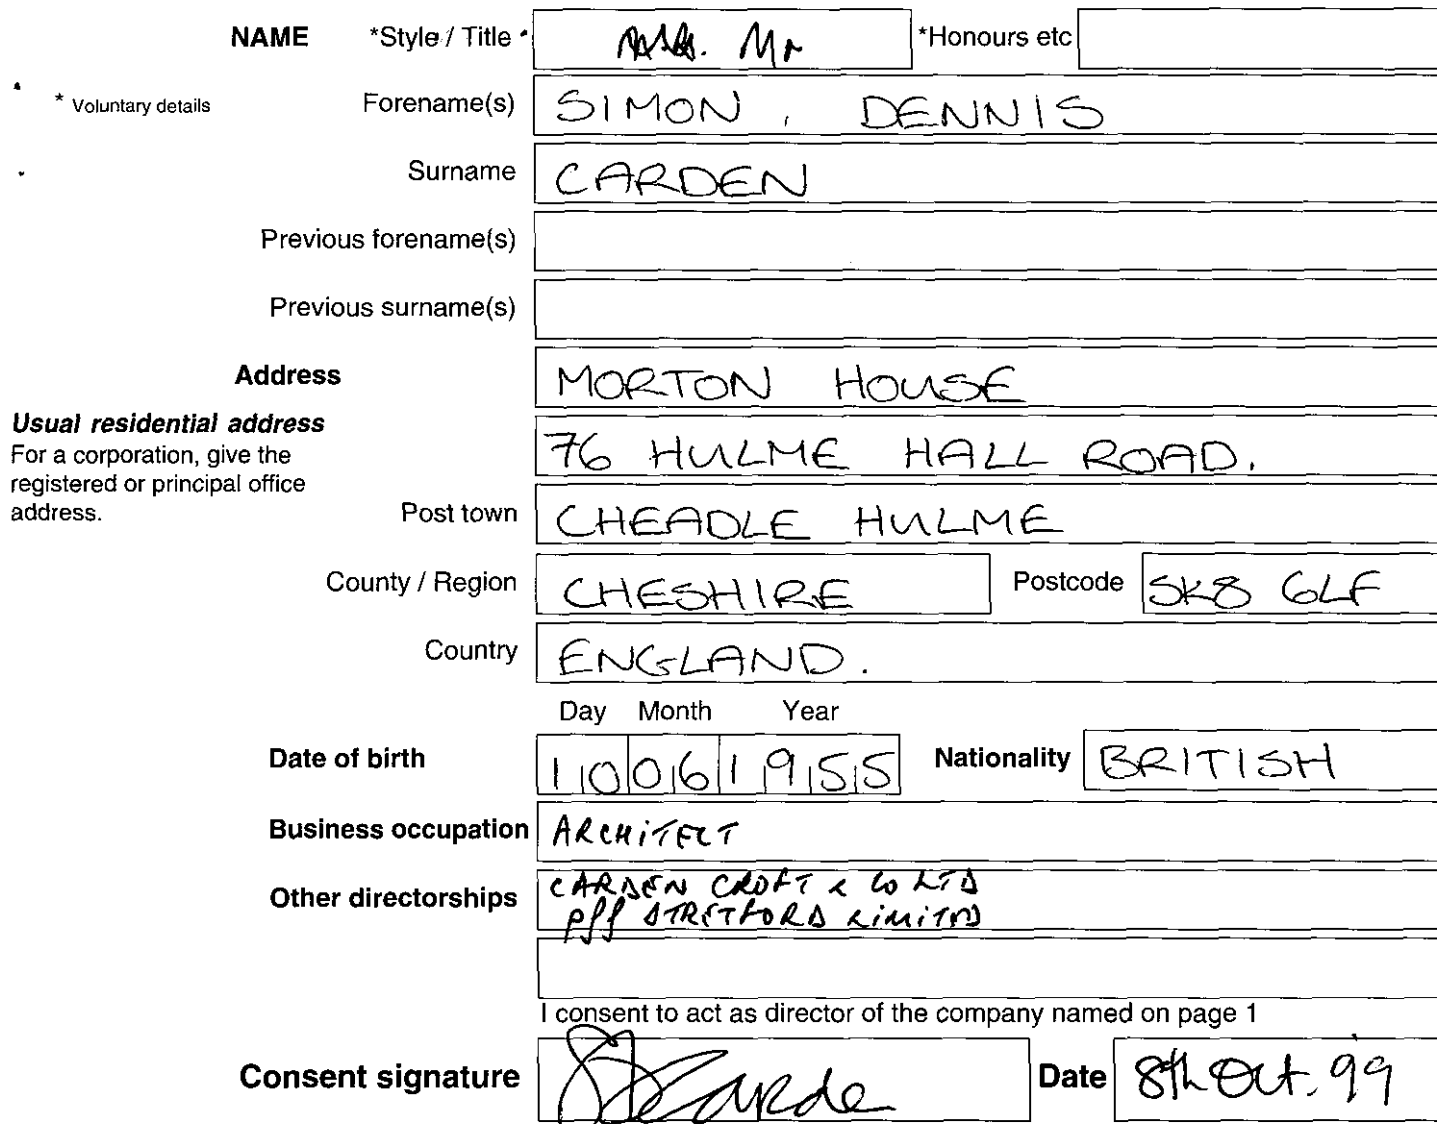 NAME *Style / Title Mr *Honours etc
* Voluntary details Forename(s) SIMON, DENNIS
Surname CARDEN
Previous forename(s)
Previous surname(s)
Address MORTON HOUSE
Usual residential address
For a corporation, give the
registered or principal office
address.
76 HULME HALL ROAD.
Post town CHEADLE HULME
County / Region CHESHIRE Postcode SK8 6LF
Country ENGLAND.
Day Month Year
Date of birth 10 06 1955 Nationality BRITISH
Business occupation ARCHITECT
Other directorships CARDEN CROFT & CO LTD
STRETFORD LIMITED
I consent to act as director of the company named on page 1
Consent signature Date 8th Oct. 99